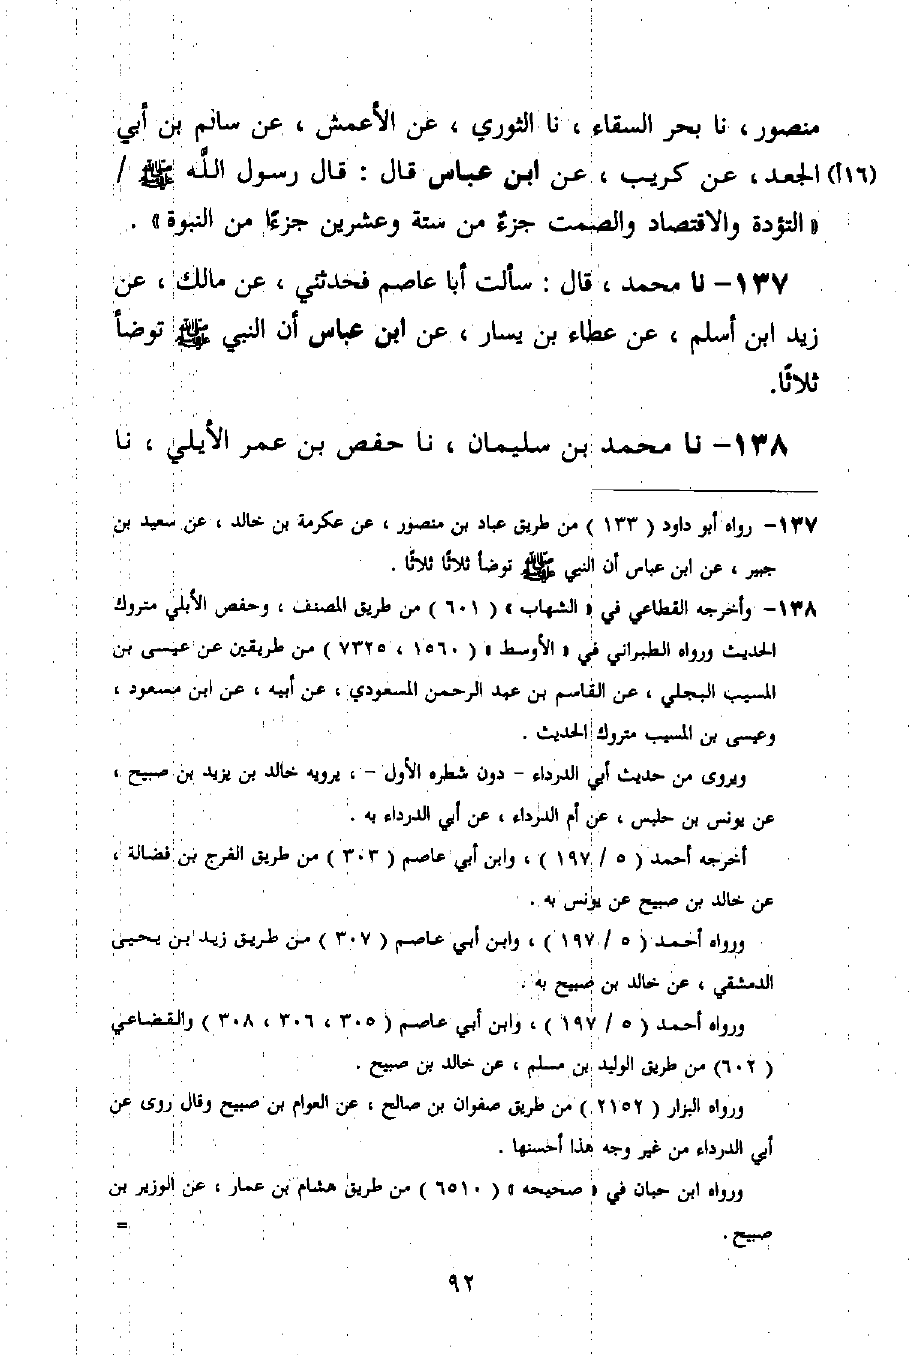 منصور ، نا بحر السقاء ، نا الثوري ، عن الأعمش ، عن سالم بن أبي
(١٦أ) الجعد ، عن كريب ، عن ابن عباس قال : قال رسول اللَّه ﷺ /
« التؤدة والاقتصاد والصمت جزءٌ من ستة وعشرين جزءًا من النبوة » .
١٣٧- نا محمد ، قال : سألت أبا عاصم فحدثني ، عن مالك ، عن
زيد ابن أسلم ، عن عطاء بن يسار ، عن ابن عباس أن النبي ﷺ توضأ
ثلاثًا.
١٣٨- نا محمد بن سليمان ، نا حفص بن عمر الأيلي ، نا
١٣٧- رواه أبو داود ( ١٣٣ ) من طريق عباد بن منصور ، عن عكرمة بن خالد ، عن سعيد بن
جبير ، عن ابن عباس أن النبي ﷺ توضأ ثلاثًا ثلاثًا .
١٣٨- وأخرجه القطاعي في « الشهاب » ( ٦٠١ ) من طريق المصنف ، وحفص الأبلي متروك
الحديث ورواه الطبراني في « الأوسط » ( ١٥٦٠ ، ٧٣٢٥ ) من طريقين عن عيسى بن
المسيب البجلي ، عن القاسم بن عبد الرحمن المسعودي ، عن أبيه ، عن ابن مسعود ،
وعيسى بن المسيب متروك الحديث .
ويروى من حديث أبي الدرداء - دون شطره الأول - ، يرويه خالد بن يزيد بن صبيح ،
عن يونس بن حلبس ، عن أم الدرداء ، عن أبي الدرداء به .
أخرجه أحمد ( ٥ / ١٩٧ ) ، وابن أبي عاصم ( ٣٠٣ ) من طريق الفرج بن فضالة ،
عن خالد بن صبيح عن يونس به .
ورواه أحمد ( ٥ / ١٩٧ ) ، وابن أبي عاصم ( ٣٠٧ ) من طريق زيد بن يحيى
الدمشقي ، عن خالد بن صبيح به .
ورواه أحمد ( ٥ / ١٩٧ ) ، وابن أبي عاصم ( ٣٠٥ ، ٣٠٦ ، ٣٠٨ ) والقضاعي
( ٦٠٢ ) من طريق الوليد بن مسلم ، عن خالد بن صبيح .
ورواه البزار ( ٢١٥٢ ) من طريق صفوان بن صالح ، عن العوام بن صبيح وقال روى عن
أبي الدرداء من غير وجه هذا أحسنها .
ورواه ابن حبان في « صحيحه » ( ٦٥١٠ ) من طريق هشام بن عمار ، عن الوزير بن
صبيح .
=
٩٢